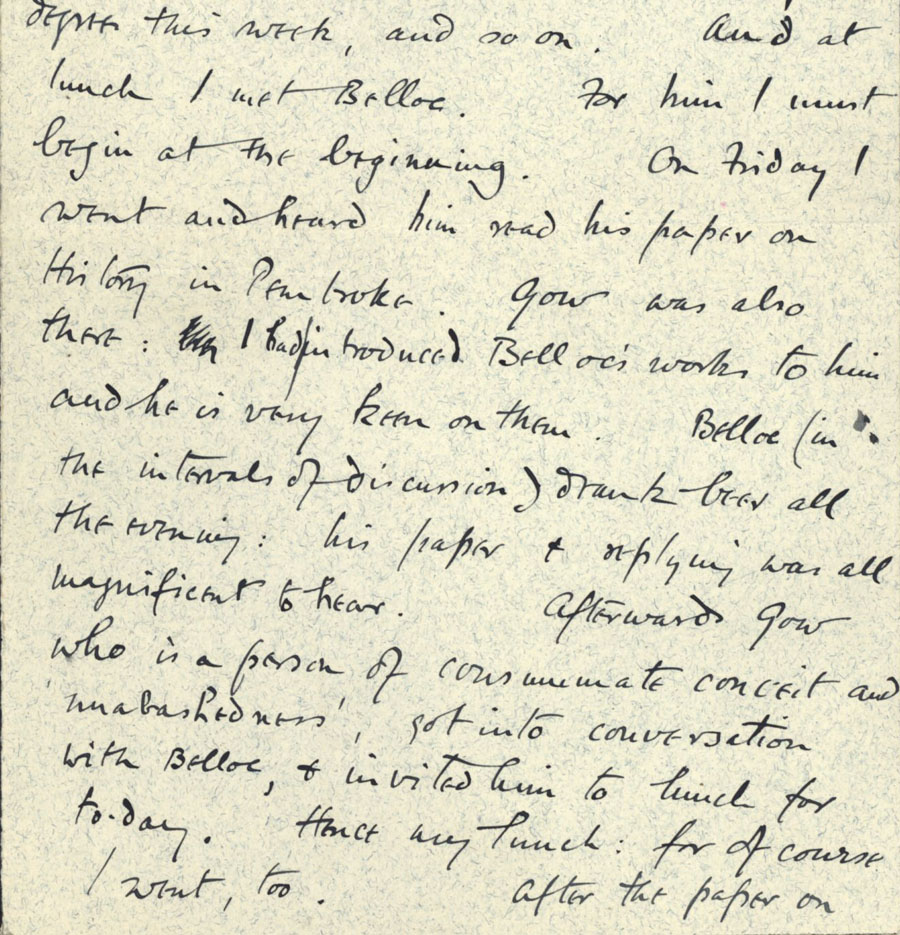 degree this week, and so on. And at
lunch I met Belloc. For him I must
begin at the beginning. On Friday I
went and heard him read his paper on
History in Pembroke. Gow was also
there: I had introduced Belloc's works to him
and he is very keen on them. Belloc (in
the intervals of discussion) drank beer all
the evening: his paper & replying was all
magnificent to hear. Afterwards Gow
who is a person of consummate conceit and
'unabashedness', got into conversation
with Belloc, & invited him to lunch for
to-day. Hence my lunch: for of course
I went, too. After the paper on